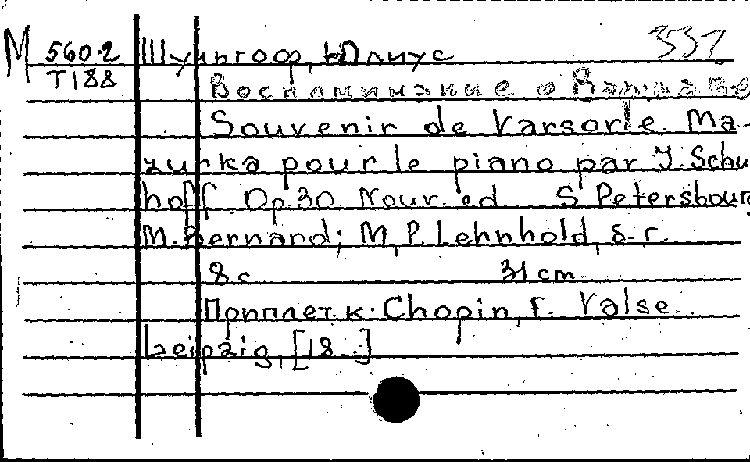 М 560-2 Шульгоф, Юлиус 337
Т188
Воспоминание о Варшаве
Souvenir de Varsovie. Ma-
zurka pour le piano par J. Schu
hoff Op. 30 Nouv. ed S Petersbourg
M. Bernard; M. P. Lehnhold, s. r.
8 c 31 cm
Приплет к: Chopin, F. Valse
Leipzig, [18..]